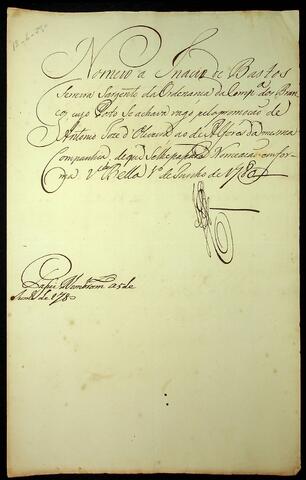 Nomeio a Ignacio de Bastos
Ferreira Sargento da Ordenança da Compa. dos Bran
cos, cujo Posto se achava vago, pela promoção de
Antonio Joze d' Oliveira ao de Alferes da mesma
Companhia, de que se lhe passará Nomeação em for
ma. Va. Bella 1º de Junho de 1780
de 1780